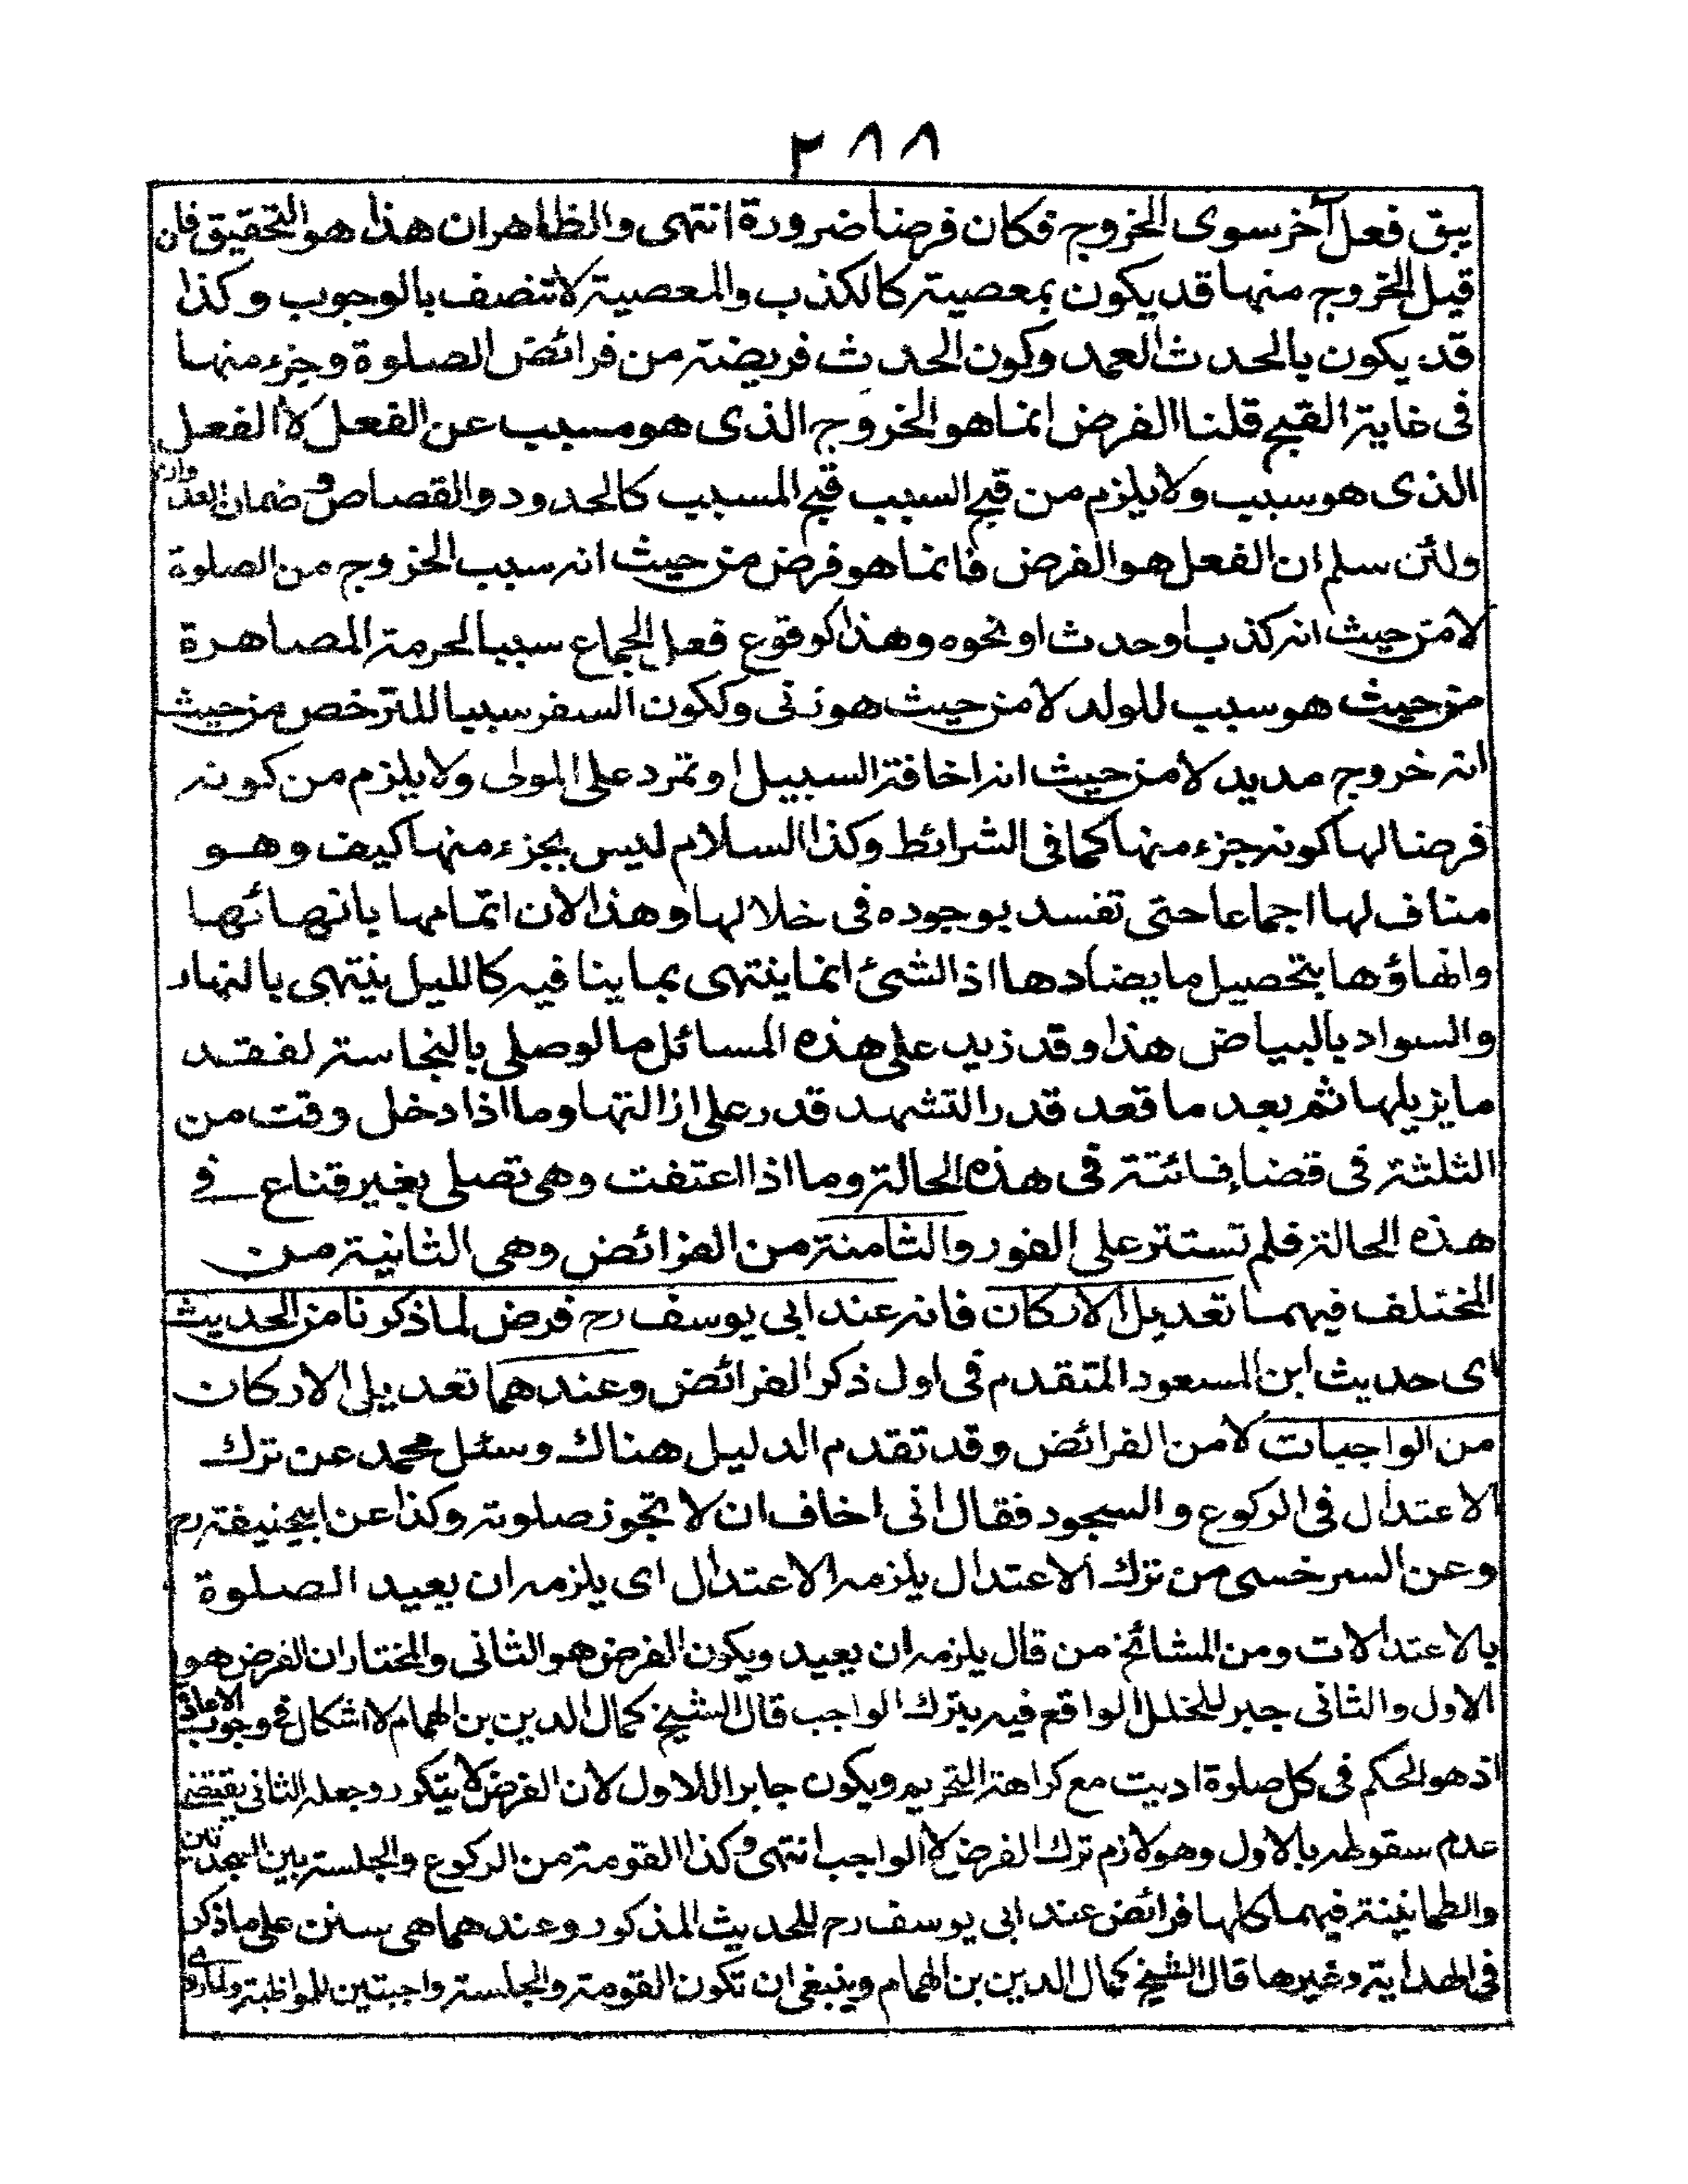 ٢٨٨
يبق فعل آخر سوى الخروج فكان فرضا ضرورة انتهى والظاهران هذا هو التحقيق فان
قيل الخروج منها قد يكون بمعصية كالكذب والمعصية لا تتصف بالوجوب وكذا
قد يكون بالحدث العمد وكون الحدث فريضة من فرائض الصلوة وجزء منها
فى غاية القبح قلنا الفرض انما هو الخروج الذى هو مسبب عن الفعل لا الفعل
الذى هو سبب ولا يلزم من قبح السبب قبح المسبب كالحدود والقصاص وضمان العدوان
ولئن سلم ان الفعل هو الفرض فانما هو فرض من حيث انه سبب الخروج من الصلوة
لا من حيث انه كذب او حدث او نحوه وهذا كوقوع فعل الجماع سببا لحرمة المصاهرة
من حيث هو سبب للولد لا من حيث هو زنى وككون السفر سببا للترخص من حيث
انه خروج مديد لا من حيث انه اخافة السبيل او تمرد على المولى ولا يلزم من كونه
فرضا لها كونه جزء منها كما فى الشرائط وكذا السلام ليس بجزء منها كيف وهو
مناف لها اجماعا حتى تفسد بوجوده فى خلالها وهذا لان اتمامها بانتهائها
وانهاؤها بتحصيل ما يضادها اذ الشئ انما ينتهى بما ينافيه كالليل ينتهى بالنهار
والسواد بالبياض هذا وقد زيد على هذه المسائل ما لو صلى بالنجاسة لفقد
ما يزيلها ثم بعد ما قعد قدر التشهد قدر على ازالتها وما اذا دخل وقت من
الثلثة فى قضاء فائتة فى هذه الحالة وما اذا اعتقت وهى تصلى بغير قناع فى
هذه الحالة فلم تستتر على الفور والثامنة من الفرائض وهى الثانية من
المختلف فيهما تعديل الاركان فانه عند ابى يوسف رح فرض لما ذكرنا من الحديث
اى حديث ابن المسعود المتقدم فى اول ذكر الفرائض وعندهما تعديل الاركان
من الواجبات لا من الفرائض وقد تقدم الدليل هناك وسئل محمد عن ترك
الاعتدال فى الركوع والسجود فقال انى اخاف ان لا تجوز صلوته وكذا عن ابيحنيفة رح
وعن السرخسى من ترك الاعتدال يلزمه الاعتدال اى يلزمه ان يعيد الصلوة
بالاعتدالات ومن المشائخ من قال يلزمه ان يعيد ويكون الفرض هو الثانى والمختار ان الفرض هو
الاول والثانى جبر للخلل الواقع فيه بترك الواجب قال الشيخ كمال الدين بن الهمام لا اشكال فى وجوب الاعادة
اذ هو الحكم فى كل صلوة اديت مع كراهة التحريم ويكون جابرا للاول لان الفرض لا يتكرر وجعله الثانى يقتضى
عدم سقوطه بالاول وهو لازم ترك الفرض لا الواجب انتهى وكذا القومة من الركوع والجلسة بين السجدتين
والطمانينة فيهما كلها فرائض عند ابى يوسف رح للحديث المذكور وعندهما هى سنن على ما ذكر
فى الهداية وغيرها قال الشيخ كمال الدين بن الهمام وينبغى ان تكون القومة والجلسة واجبتين للمواظبة ولما روى